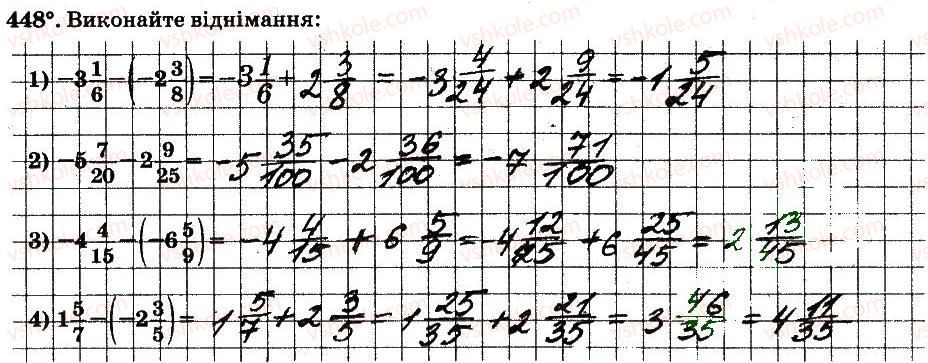 448°. Виконайте віднімання:
1) -3 1/6 - (-2 3/8) = -3 1/6 + 2 3/8 = -3 4/24 + 2 9/24 = -1 5/24
2) -5 7/20 - 2 9/25 = -5 35/100 - 2 36/100 = -7 71/100
3) -4 4/15 - (-6 5/9) = -4 4/15 + 6 5/9 = -4 12/25 + 6 25/45 = 2 13/45
4) 1 5/7 - (-2 3/5) = 1 5/7 + 2 3/5 = 1 25/35 + 2 21/35 = 3 46/35 = 4 11/35